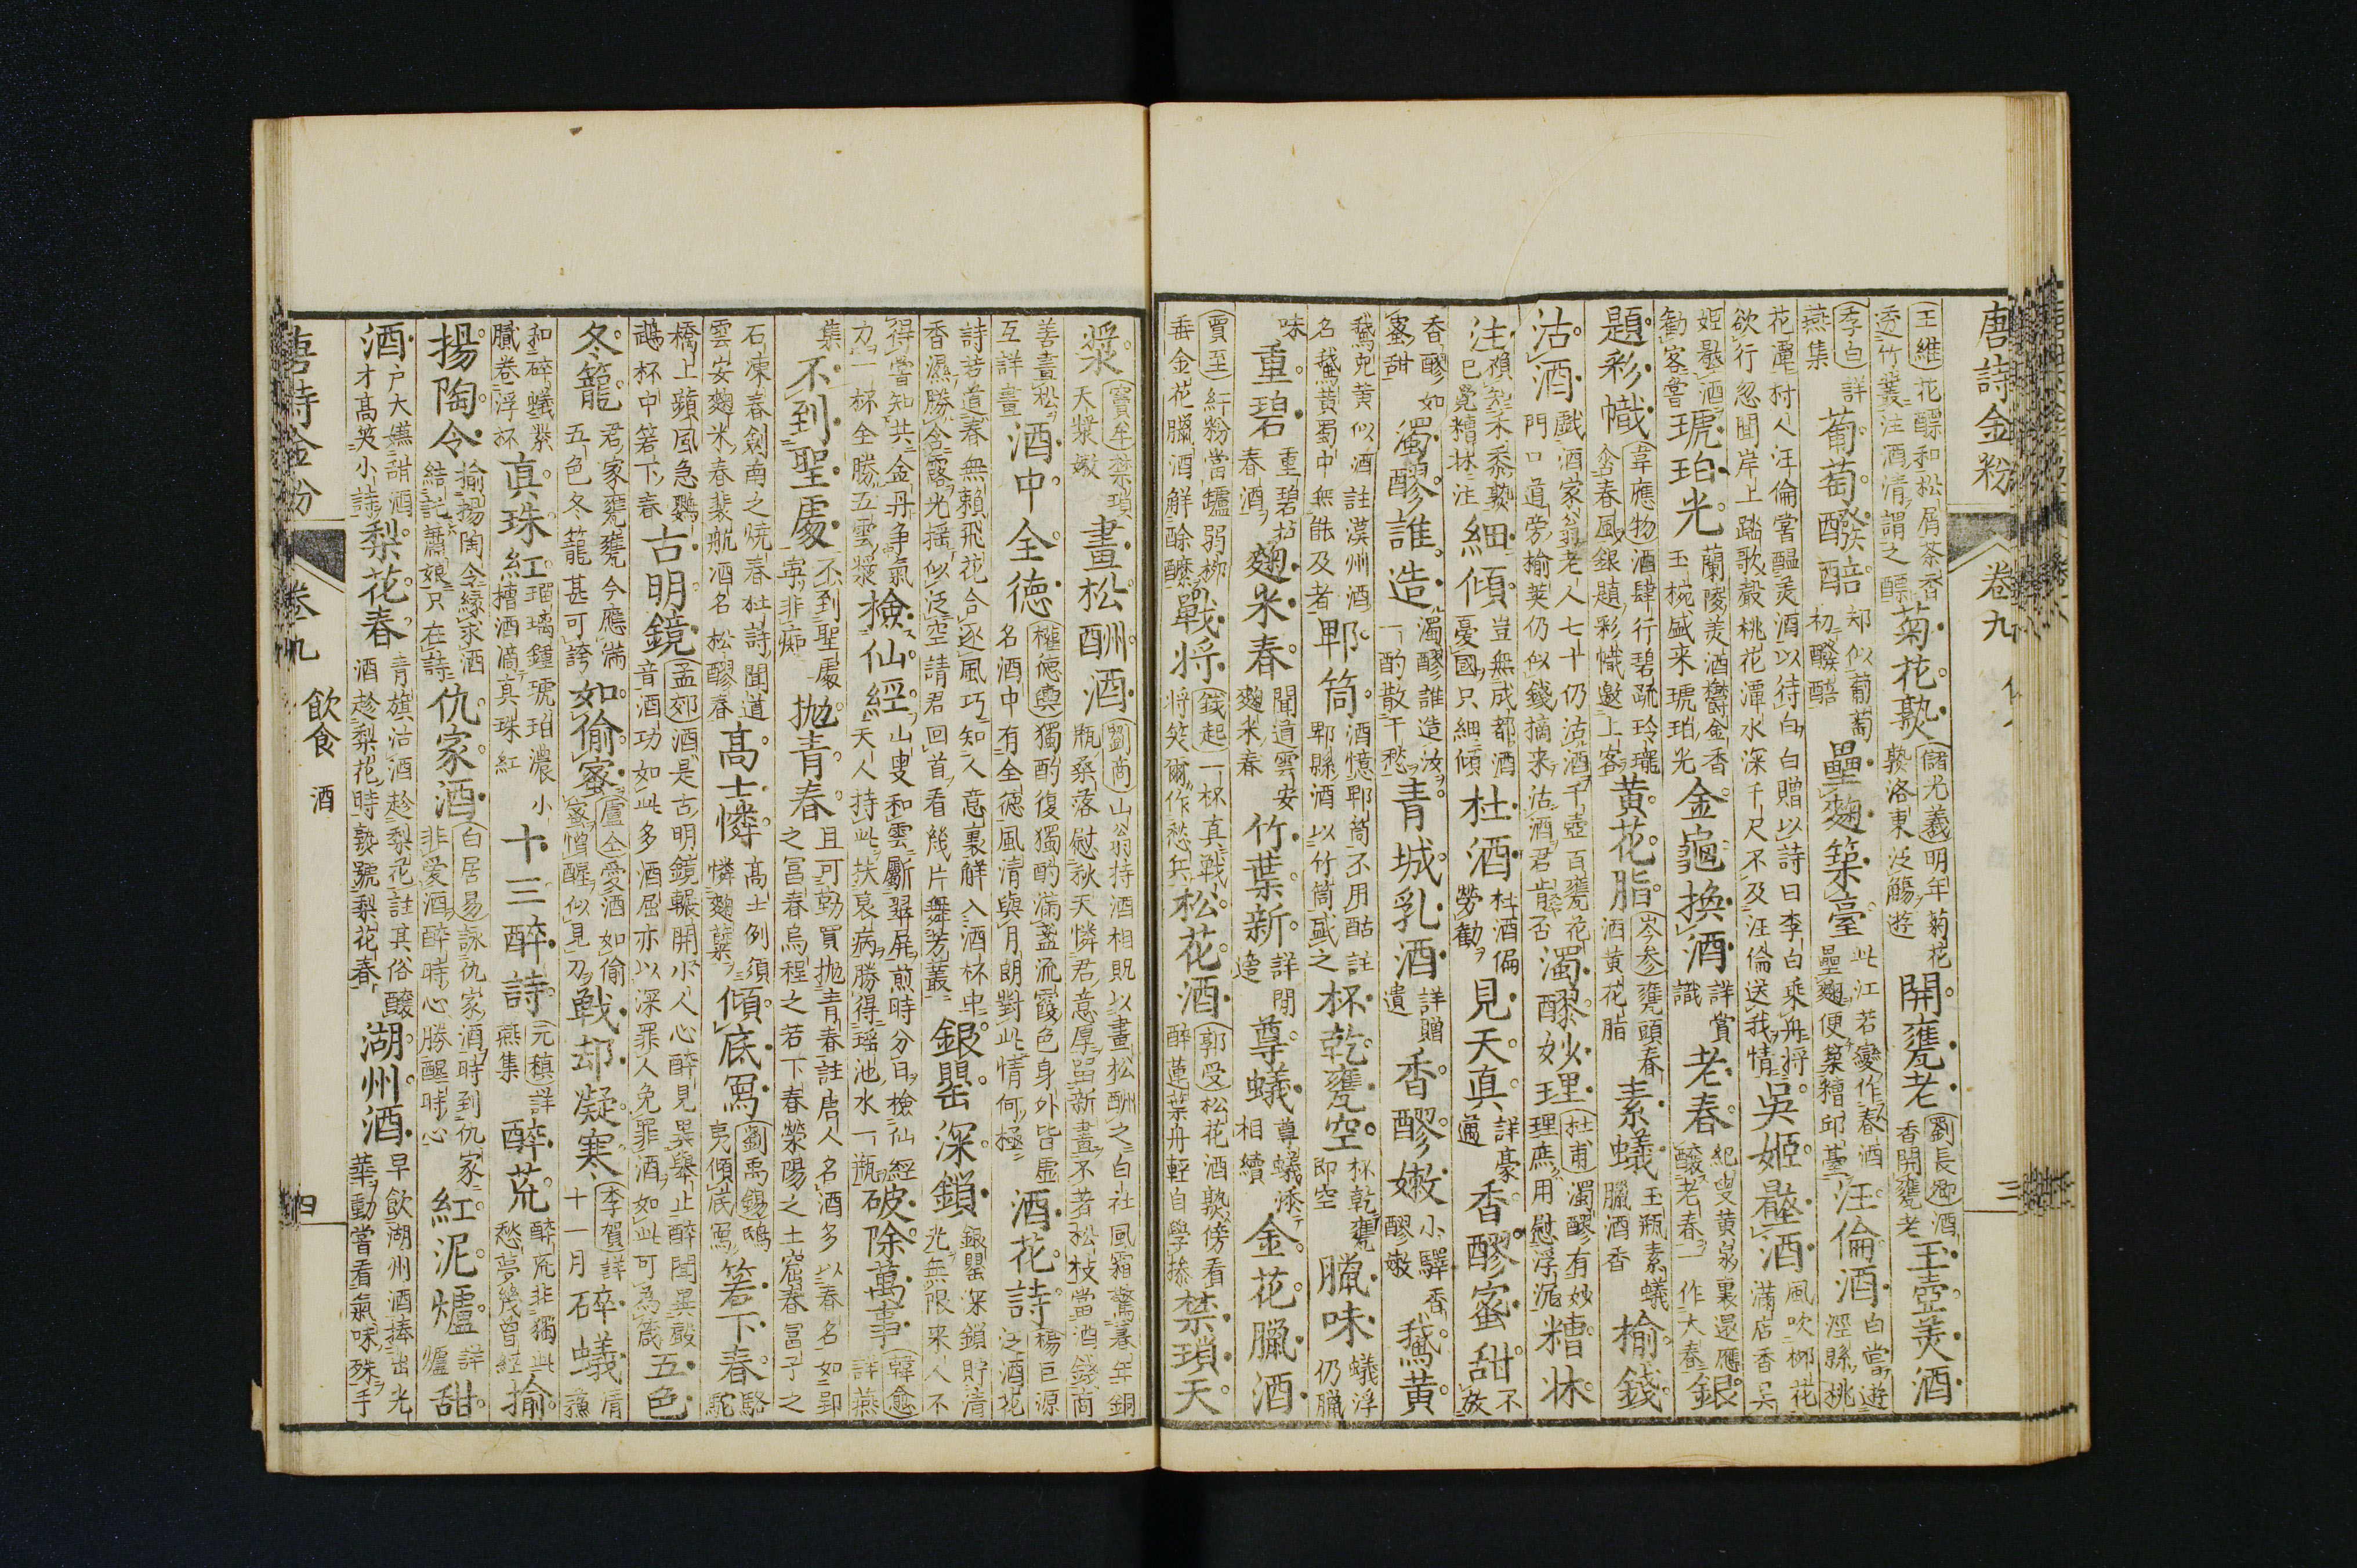 唐詩金粉 卷九 三
王維花醥和松屑茶香
透竹叢注酒清謂之醥
菊花熟
儲光羲明年菊花
熟洛東泛觴遊
開甕老
劉長卿酒
香開甕老
玉壺美酒
李白詳
燕集
葡萄醱醅
却似葡萄
初醱醅
壘麴築臺
此江若變作春酒
壘麴便築糟邱臺
汪倫酒
白嘗遊
涇縣桃
花潭村人汪倫嘗醞美酒以待白白贈以詩曰李白乘舟將
欲行忽聞岸上踏歌聲桃花潭水深千尺不及汪倫送我情
吳姬壓酒
風吹柳花
滿店香吳
姬壓酒
勸客嘗
琥珀光
蘭陵美酒鬱金香
玉椀盛来琥珀光
金龜換酒
詳賞
識
老春
紀叟黄泉裏還應
醸老春一作大春
銀
題彩幟
韋應物酒肆行碧疏玲瓏
含春風銀題彩幟邀上客
黄花脂
岑参甕頭春
酒黄花脂
素蟻
玉瓶素蟻
臘酒香
榆錢
沽酒
戯酒家翁老人七十仍沽酒千壺百甕花
門口道旁榆莢仍似錢摘来沽酒君肯否
濁醪妙理
杜甫濁醪有妙
理庶用慰浮沉
糟牀
注
頼知禾黍熟
已覺糟牀注
細傾
豈無成都酒
憂國只細傾
杜酒
杜酒偏
勞勸
見天真
詳豪
邁
香醪蜜甜
不放
香醪如
蜜甜
濁醪誰造
濁醪誰造汝
一酌散千愁
青城乳酒
詳贈
遺
香醪嫩
小驛香
醪嫩
鵞黄
鵞兒黄似酒註漢州酒
名鵞黄蜀中無能及者
郫筒
酒憶郫筒不用酤註
郫縣酒以竹筒盛之
杯乾甕空
杯乾甕
即空
臘味
蟻浮
仍臘
味
重碧
重碧拈
春酒
麴米春
聞道雲安
麴米春
竹葉新
詳閒
逸
尊蟻
尊蟻添
相續
金花臘酒
賈至紅粉當鑪弱柳
垂金花臘酒解酴醿
戰將
錢起一杯真戰
將笑爾作愁兵
松花酒
郭受松花酒熟傍看
醉蓮葉舟輕自學操
禁瑣天
漿
竇牟禁瑣
天漿嫩
畫松酬酒
劉商山翁持酒相貺以畫松酬之白社風霜驚暮年銅
瓶桑落慰秋天憐君意厚留新畫不著松枝當酒錢商
善畫松
互詳畫
酒中全德
權德輿獨酌復獨酌滿盞流霞色身外皆虛
名酒中有全德風清與月朗對此情何極
酒花詩
楊巨源
之酒花
詩若道春無賴飛花合逐風巧知人意裏解入酒杯中
香濕勝含露光揺似泛空請君回首看幾片舞芳叢
銀罌深鎖
銀罌深鎖貯清
光無限来人不
得嘗知共金丹争氣
力一杯全勝五雲漿
檢仙經
山叟和雲斸翠屏煎時分日檢仙經
天人持此扶衰病勝得瑶池水一瓶
破除萬事
韓愈
詳燕
集
不到聖處
不到聖處
寧非痴
抛青春
且可勤買抛青春註唐人名酒多以春名如郢
之冨春烏程之若下春滎陽之土窟春冨子之
石凍春劍南之燒春杜詩聞道
雲安麴米春裴航酒名松醪春
高士憐
高士例須
憐麴糵
傾底寫
劉禹錫鴟
夷傾底寫
箬下春
駱駝
橋上蘋風急鸚
鵡杯中箬下春
古明鏡
孟郊酒是古明鏡輾開小人心醉見異舉止醉聞異聲
音酒功如此多酒屈亦以深罪人免罪酒如此可為箴
五色
冬籠
君家甕甕今應滿
五色冬籠甚可誇
如偷蜜
盧仝愛酒如偷
蜜憎醒似見刀
戰却凝寒
李賀詳
十一月
碎蟻
清蘓
和碎蟻紫
膩卷浮杯
真珠紅
瑠璃鍾琥珀濃小
槽酒滴真珠紅
十三醉詩
元稹詳
燕集
醉荒
醉荒非獨此
愁夢幾曾經
揄
揚陶令
揄揚陶令緣求酒
結託蕭娘只在詩
仇家酒
白居易詠仇家酒時到仇家
非愛酒醉時心勝醒時心
紅泥爐
詳
爐
甜
酒
户大嫌甜酒
才高笑小詩
梨花春
青旗沽酒趁梨花註其俗醸
酒趁梨花時熟號梨花春
湖州酒
早飲湖州酒捧出光
華動嘗看氣味殊手
唐詩金粉 卷九 飲食 酒 四